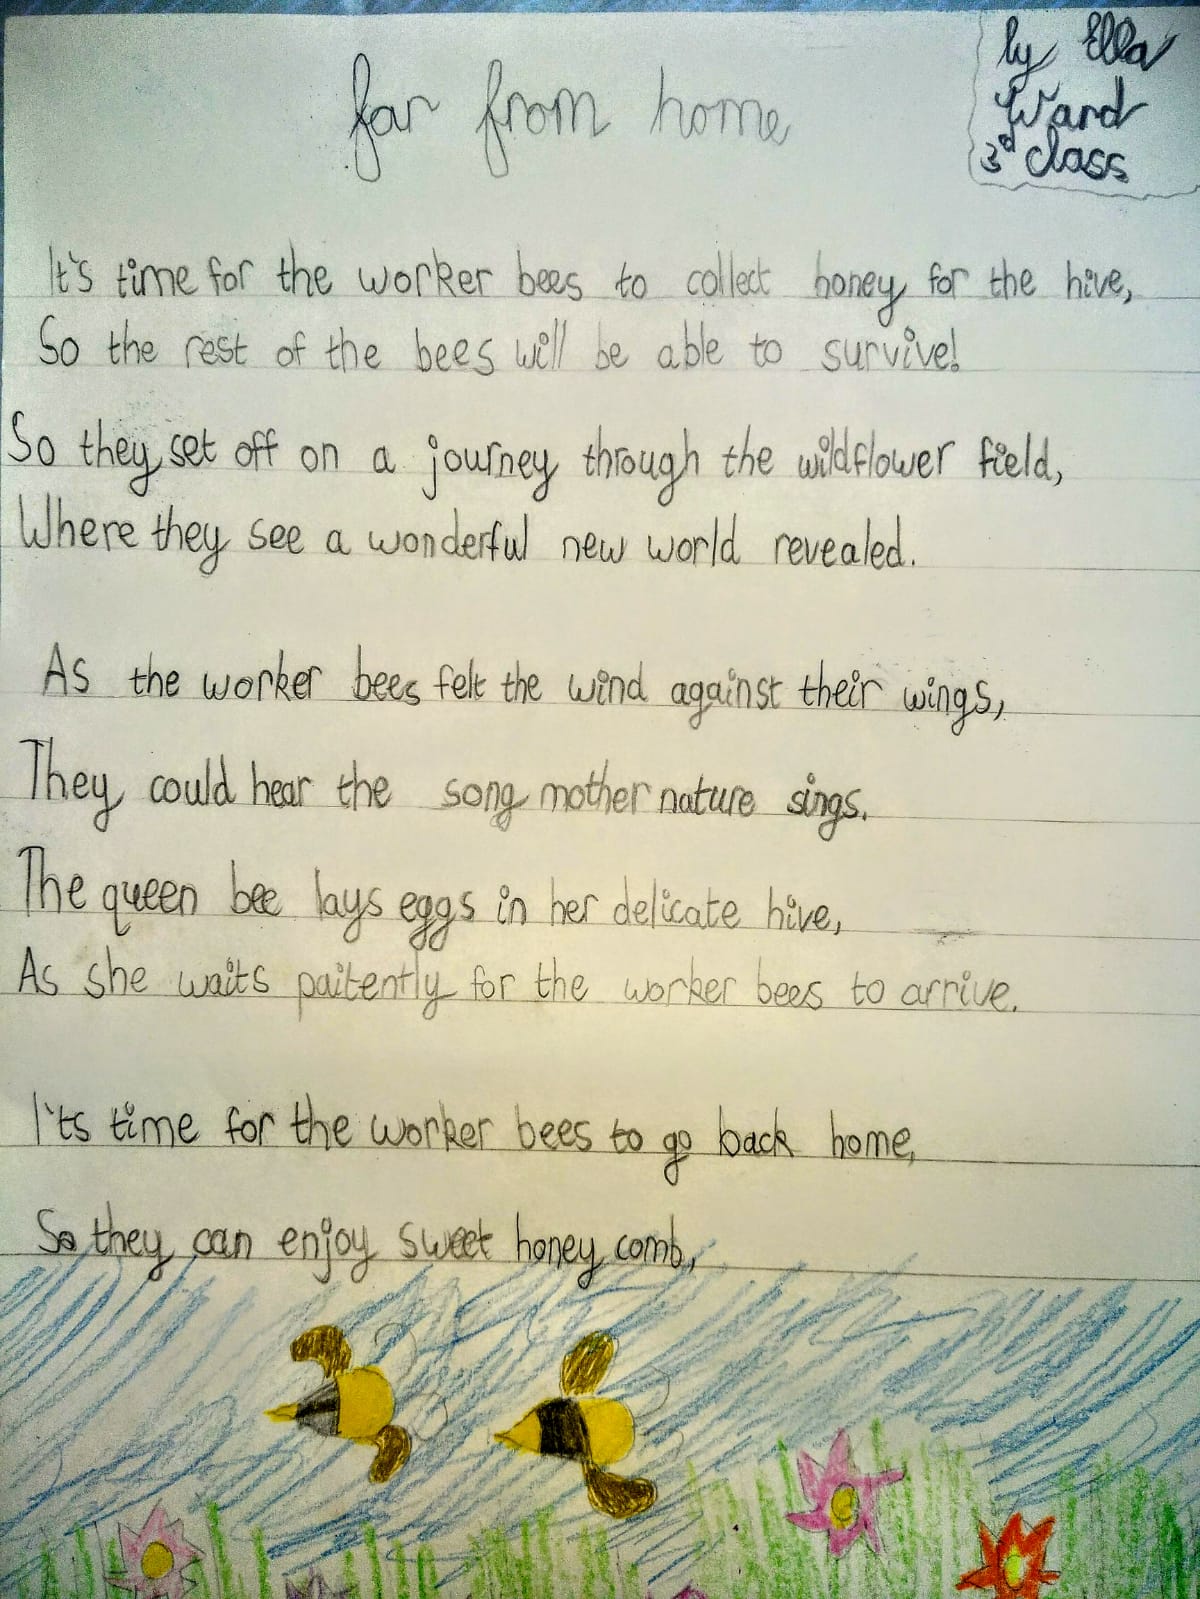 far from home
by Ella
Ward
3rd class
It's time for the worker bees to collect honey for the hive,
So the rest of the bees will be able to survive!
So they set off on a journey through the wildflower field,
Where they see a wonderful new world revealed.
As the worker bees felt the wind against their wings,
They could hear the song mother nature sings.
The queen bee lays eggs in her delicate hive,
As she waits paitently for the worker bees to arrive.
I'ts time for the worker bees to go back home,
So they can enjoy sweet honey comb,